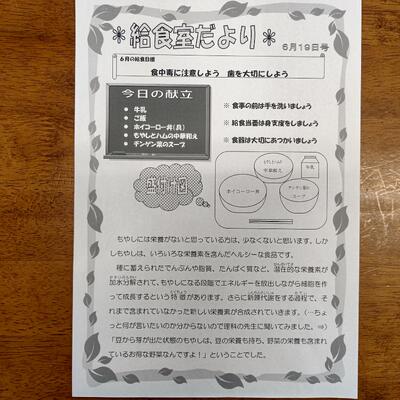 ＊給食室だより＊
6月19日号
6月の給食目標
食中毒に注意しよう　歯を大切にしよう
今日の献立
● 牛乳
● ご飯
● ホイコーロー丼（具）
● もやしとハムの中華和え
● チンゲン菜のスープ
※ 食事の前は手を洗いましょう
※ 給食当番は身支度をしましょう
※ 食器は大切にあつかいましょう
盛り付け図
もやしとハムの
中華和え
牛乳
ホイコーロー丼
チンゲン菜の
スープ
もやしには栄養がないと思っている方は、少なくないと思います。しか
しもやしは、いろいろな栄養素を含んだヘルシーな食品です。
種に蓄えられたでんぷんや脂質、たんぱく質など、潜在的な栄養素が
加水分解されて、もやしになる段階でエネルギーを放出しながら細胞を作
って成長するという特徴があります。さらに新陳代謝をする過程で、そ
れまで含まれていなかった新しい栄養素が合成されていきます。（…ちょ
っと何が言いたいのか分からないので理科の先生に聞いてみました。⇒）
「豆から芽が出た状態のもやしは、豆の栄養も持ち、野菜の栄養も含まれ
ているお得な野菜なんですよ！」ということでした。